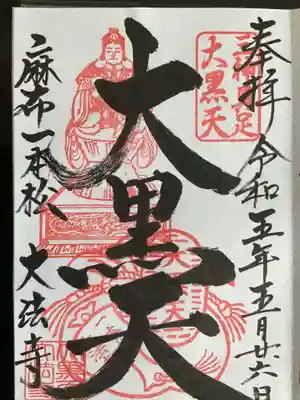 奉拝 令和五年五月廿六日
大黒天
大黒天
麻布一本松 大法寺